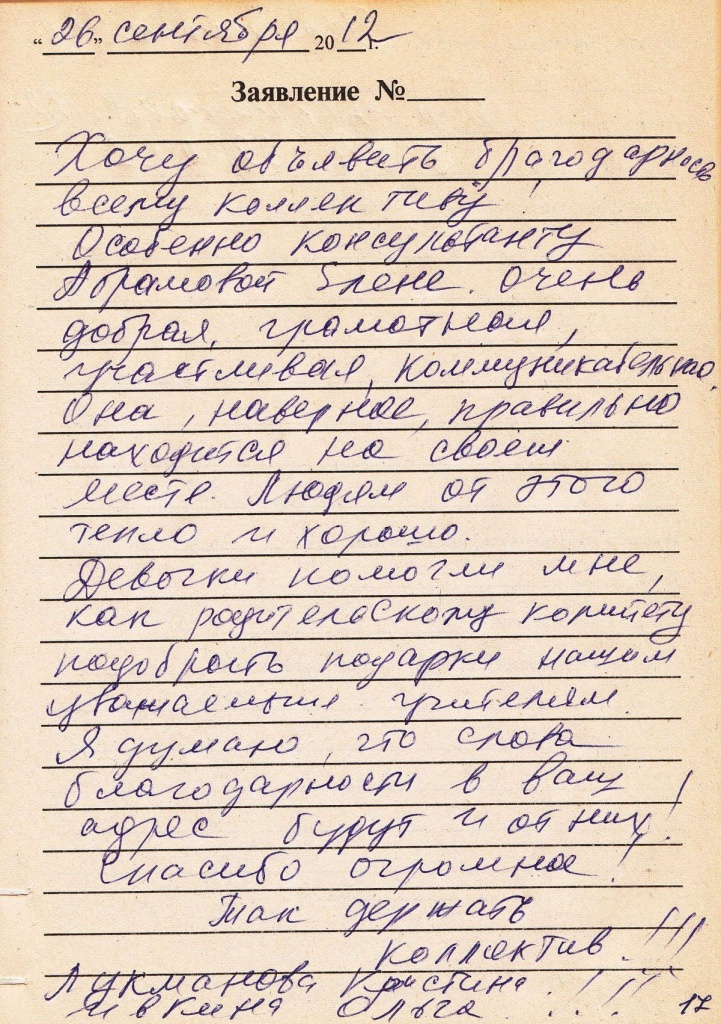 "26" сентября 2012 г.
Заявление №
Хочу объявить благодарность
всему коллективу!
Особенно консультанту
Абрамовой Елене. Очень
добрая, грамотная,
участливая, коммуникательная.
Она, наверное, правильно
находится на своем
месте. Людям от этого
тепло и хорошо.
Девочки помогли мне,
как родительскому комитету
подобрать подарки нашим
уважаемым учителям.
Я думаю, что слова
благодарности в ваш
адрес будут и от них!
Спасибо огромное!
Так держать
коллектив!!!
Лукманова Кристина
Ольга ...!!!
17